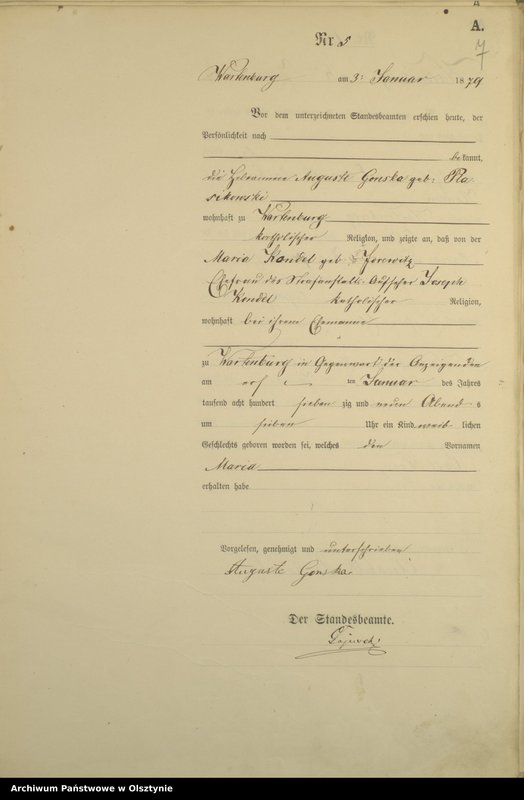 A.
7
Nr 5
Wartenburg am 3. Januar 1879
Vor dem unterzeichneten Standesbeamten erschien heute, der
Persönlichkeit nach
bekannt,
die Hebeamme Auguste Gonska geb.
wohnhaft zu Wartenburg
katholischer Religion, und zeigte an, daß von der
Maria Kondel geb
Ehefrau des Strafanstalts-Aufseher Joseph
Kondel katholischer Religion,
wohnhaft bei ihrem Ehemanne
zu Wartenburg in Gegenwart der Anzeigenden
am ten Januar des Jahres
tausend acht hundert sieben zig und neun Abend s
um sieben Uhr ein Kind weib lichen
Geschlechts geboren worden sei, welches den Vornamen
Maria
erhalten habe
Vorgelesen, genehmigt und unterschrieben
Auguste Gonska.
Der Standesbeamte.
Archiwum Państwowe w Olsztynie